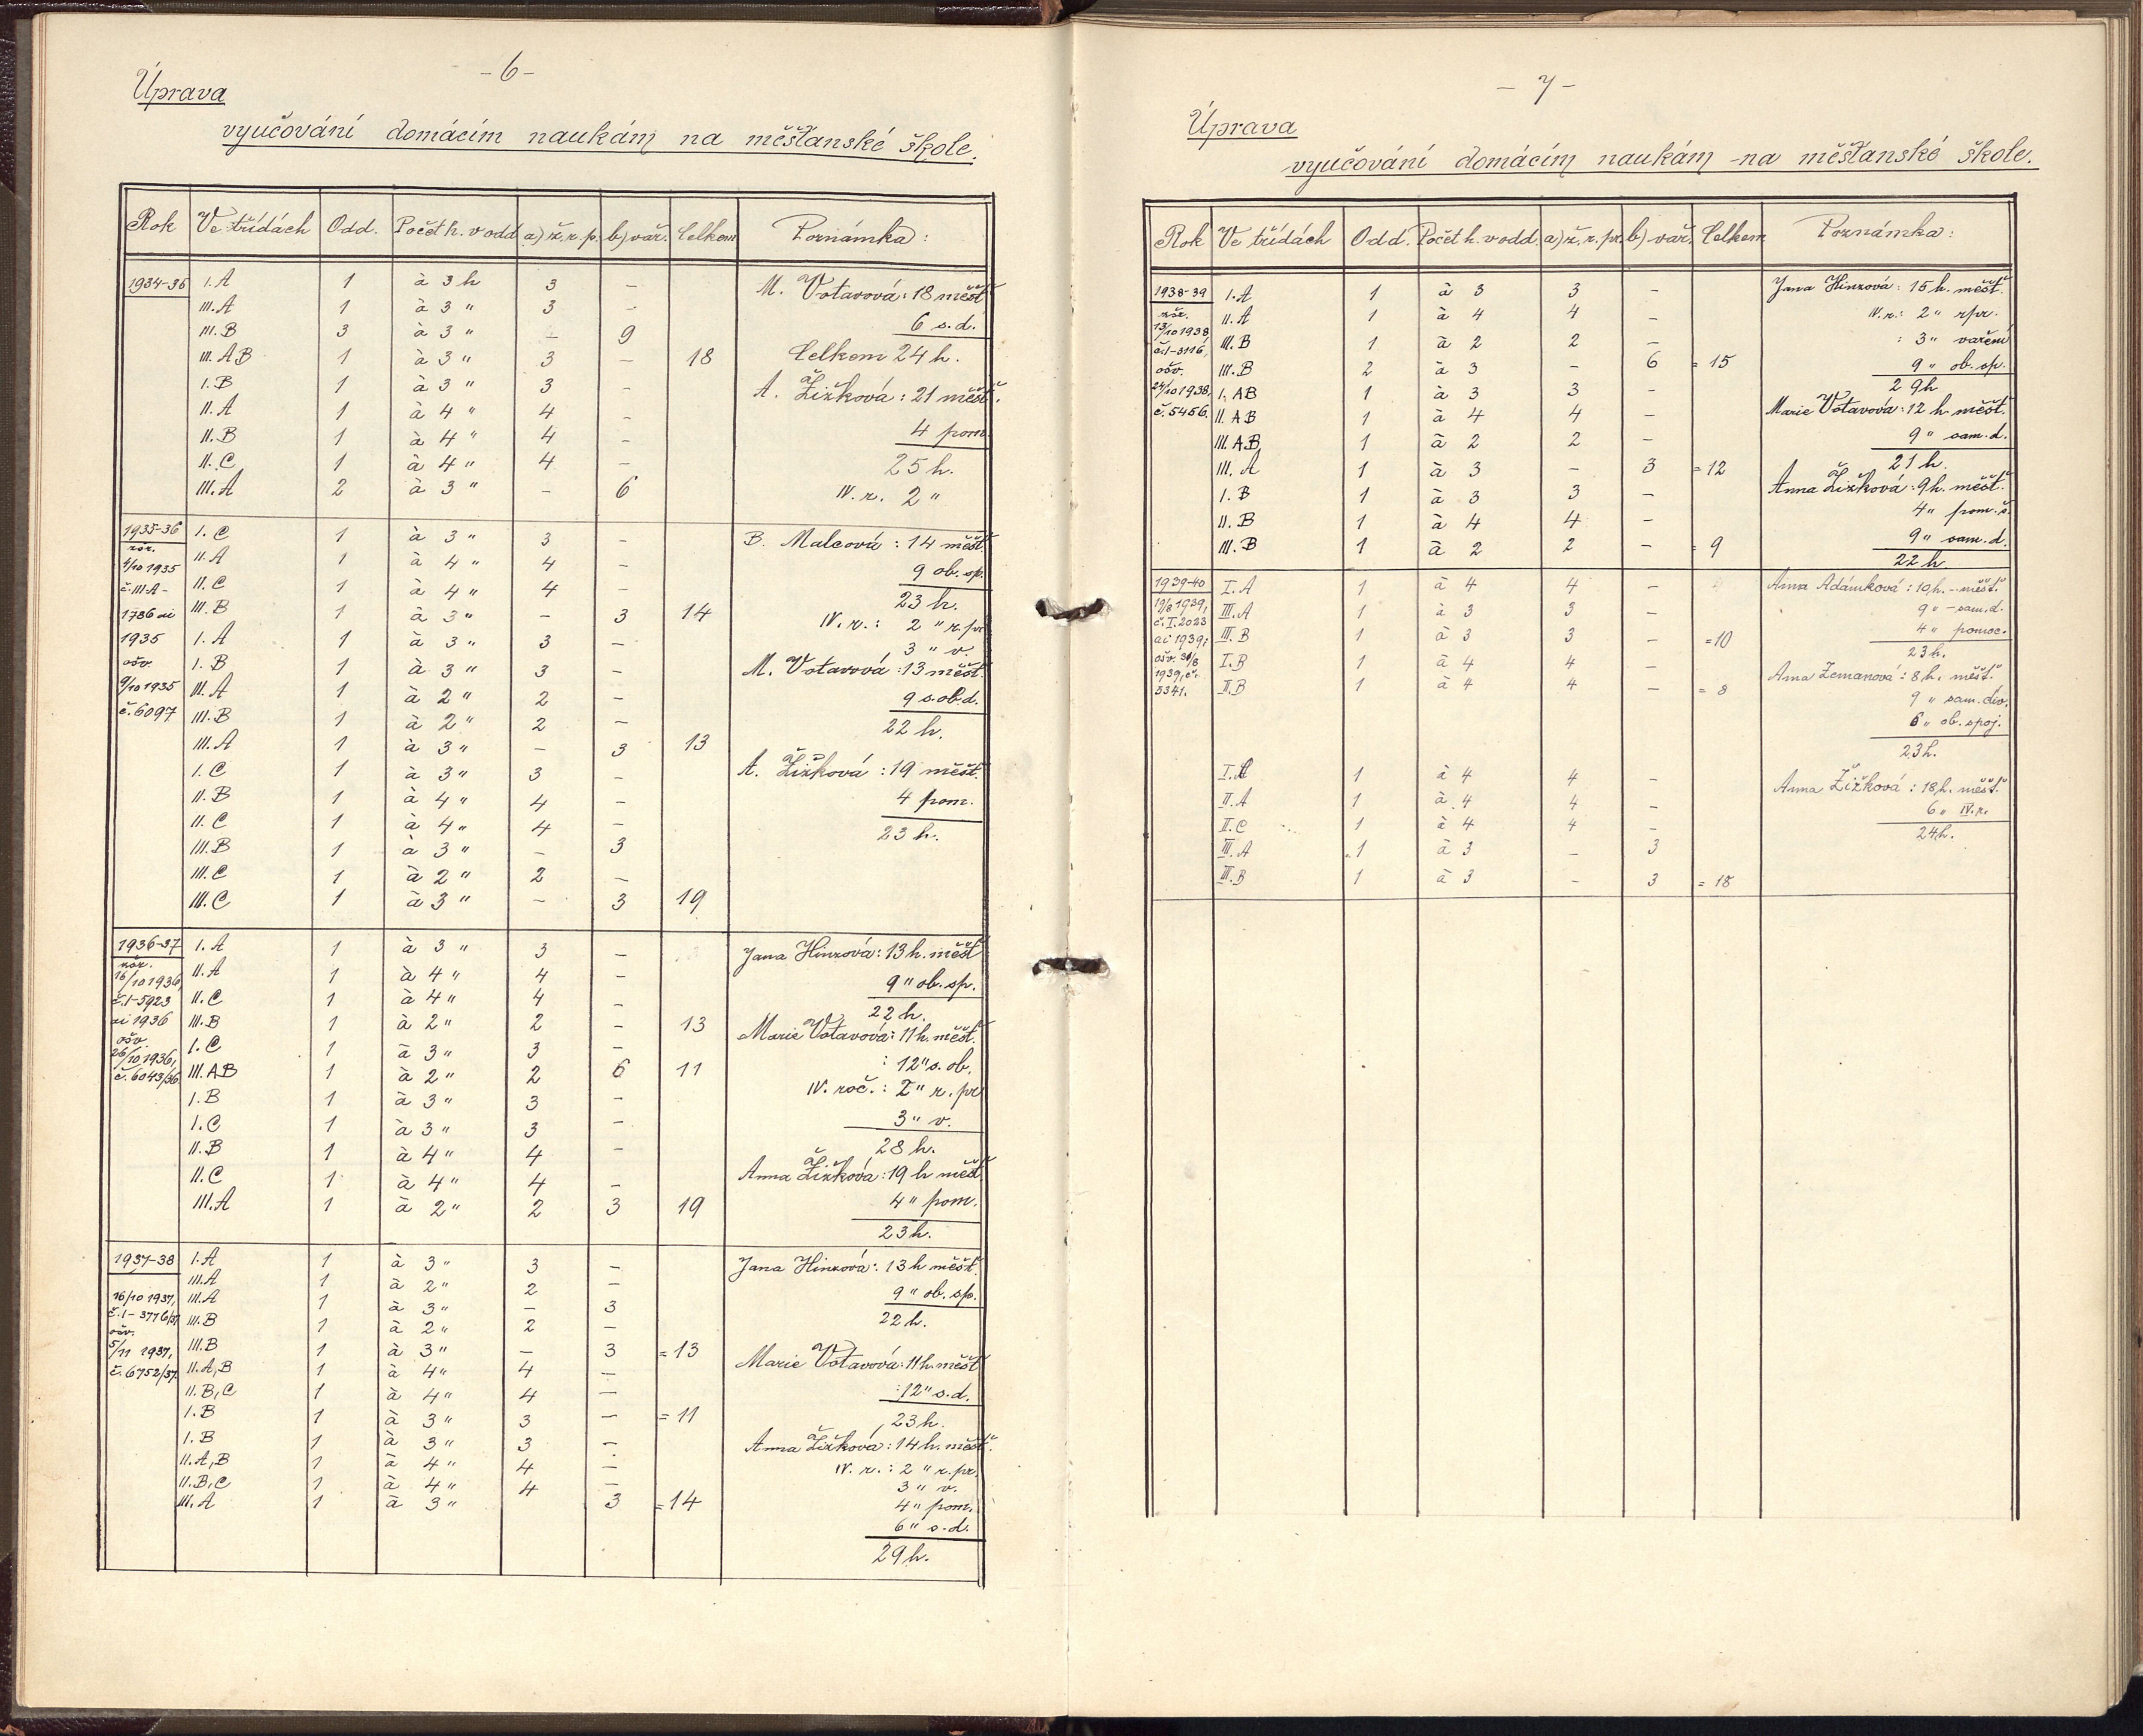 - 6 -
Úprava
vyučování domácím naukám na měšťanské škole.
Rok Ve třídách Odd. Počet h. v odd. a) ž. r. p. b) vař. Celkem Poznámka:
1934-35 I.A 1 à 3 h 3 – M. Votavová: 18 měšť
III.A 1 à 3 " 3 –
III.B 3 à 3 " – 9 6 s.d.
III.AB 1 à 3 " 3 – 18 Celkem 24 h.
I.B 1 à 3 " 3 – A. Žižková: 21 měšť.
II.A 1 à 4 " 4 –
II.B 1 à 4 " 4 – 4 pom.
II.C 1 à 4 " 4 – 25 h.
III.A 2 à 3 " – 6 IV. r. 2 "
1935-36 I.C 1 à 3 " 3 – B. Malcová: 14 měšť.
nóř.
4/10 1935 II.A 1 à 4 " 4 – 9 ob. sp.
č. III-A- II.C 1 à 4 " 4 – 23 h.
1786 ai III.B 1 à 3 " – 3 14 IV. r.: 2 " r. pr
1935 I.A 1 à 3 " 3 – 3 " v.
ošv. I.B 1 à 3 " 3 – M. Votavová: 13 měšť.
9/10 1935 III.A 1 à 2 " 2 – 9 s. ob. d.
č. 6097 III.B 1 à 2 " 2 – 22 h.
III.A 1 à 3 " – 3 13
I.C 1 à 3 " 3 – A. Žižková: 19 měšť.
II.B 1 à 4 " 4 – 4 pom.
II.C 1 à 4 " 4 – 23 h.
III.B 1 à 3 " – 3
III.C 1 à 2 " 2 –
III.C 1 à 3 " – 3 19
1936-37 I.A 1 à 3 " 3 – Jana Hinzová: 13 h. měšť
16/10 1936, II.A 1 à 4 " 4 – 9 " ob. sp.
č. I-5923 II.C 1 à 4 " 4 – 22 h.
ai 1936 III.B 1 à 2 " 2 – 13 Marie Votavová: 11 h. měšť.
ošv. I.C 1 à 3 " 3 –
26/10 1936, : 12 " s. ob.
č. 6043/36 III.AB 1 à 2 " 2 6 11 IV. roč.: 2 " r. pr
I.B 1 à 3 " 3 – 3 " v.
I.C 1 à 3 " 3 – 28 h.
II.B 1 à 4 " 4 – Anna Žižková: 19 h měšť
II.C 1 à 4 " 4 – 4 " pom.
III.A 1 à 2 " 2 3 19 23 h.
1937-38 I.A 1 à 3 " 3 – Jana Hinzová: 13 h měšť.
III.A 1 à 2 " 2 –
16/10 1937, III.A 1 à 3 " – 3 9 " ob. sp.
č. I-3776/37 III.B 1 à 2 " 2 – 22 h.
ošv.
5/11 1937, III.B 1 à 3 " – 3 = 13
č. 6752/37. II.A,B 1 à 4 " 4 – Marie Votavová: 11 h. měšť
II.B,C 1 à 4 " 4 – : 12 " s.d.
I.B 1 à 3 " 3 – = 11 23 h.
I.B 1 à 3 " 3 – Anna Žižková: 14 h. měšť.
II.A,B 1 à 4 " 4 – IV. r.: 2 " r. pr.
II.B,C 1 à 4 " 4 – 3 " v.
III.A 1 à 3 " 3 = 14 4 " pom.
6 " s.d.
29 h.
- 7 -
Úprava
vyučování domácím naukám na měšťanské škole.
Rok Ve třídách Odd. Počet h. v odd. a) ž. r. pr. b) vař. Celkem Poznámka:
1938-39 I.A 1 à 3 3 – Jana Hinzová: 15 h. měšť.
II.A 1 à 4 4 – IV. r.: 2 " r. pr.
13/10 1938,
č. I-3116, III.B 1 à 2 2 – : 3 " vaření
ošv. III.B 2 à 3 – 6 = 15 9 " ob. sp.
29 h
24/10 1938, I.AB 1 à 3 3 – Marie Votavová: 12 h. měšť.
č. 5456. II.AB 1 à 4 4 –
III.AB 1 à 2 2 – 9 " sam. d.
III.A 1 à 3 – 3 = 12 21 h.
I.B 1 à 3 3 – Anna Žižková: 9 h. měšť.
II.B 1 à 4 4 – 4 " pom. š.
III.B 1 à 2 2 – = 9 9 " sam. d.
22 h.
1939-40 I.A 1 à 4 4 – Anna Adámková: 10 h. - měšť.
19/8 1939, III.A 1 à 3 3 – 9 " - sam. d.
č. I. 2023
ai 1939; III.B 1 à 3 3 – = 10 4 " pomoc.
23 h.
ošv. 31/8 I.B 1 à 4 4 – Anna Zemanová: 8 h. měšť.
1939, č.
5341. II.B 1 à 4 4 – = 8 9 " sam. div.
6 " ob. spoj.
23 h.
I.C 1 à 4 4 – Anna Žižková: 18 h. měšť.
II.A 1 à 4 4 – 6 " IV. r.
II.C 1 à 4 4 – 24 h.
III.A 1 à 3 – 3
III.B 1 à 3 – 3 = 18